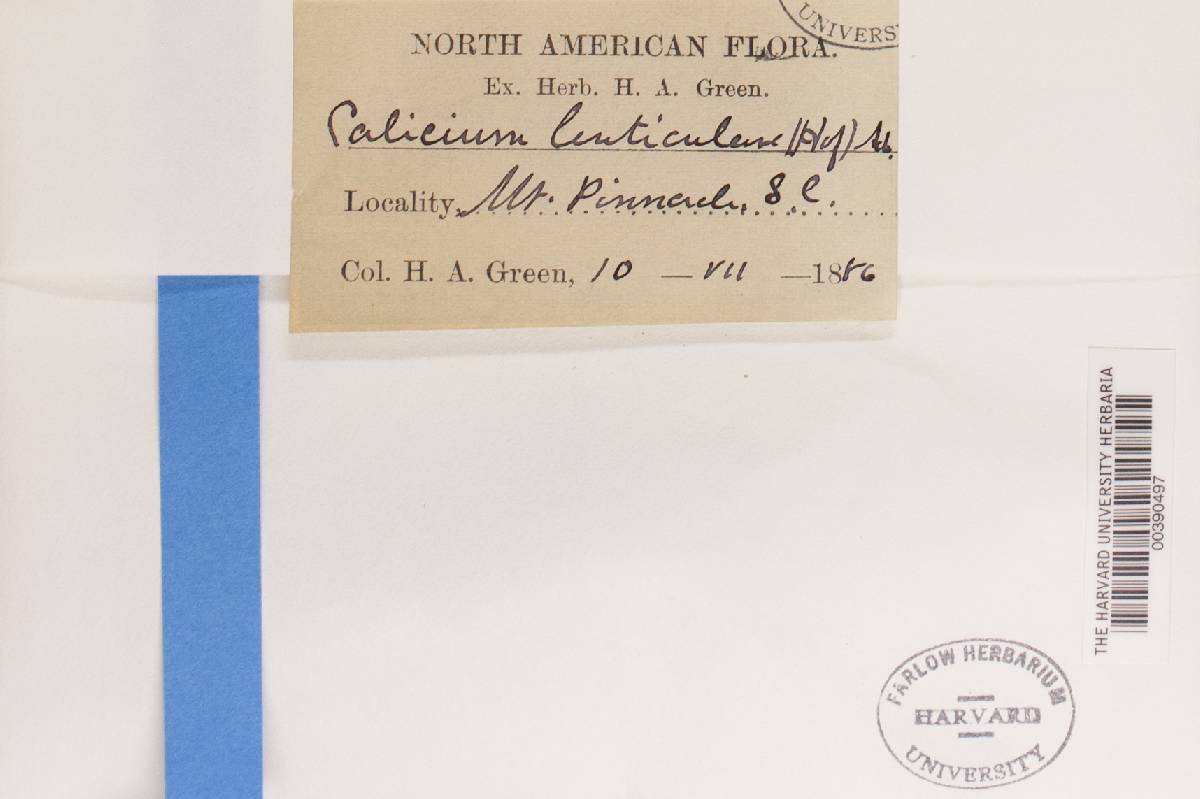 UNIVERS
NORTH AMERICAN FLORA.
Ex. Herb. H. A. Green.
Calicium lenticulare (Hof) Ach.
Locality, Mt. Pinnacle, S. C.
Col. H. A. Green, 10 — VII — 1886
THE HARVARD UNIVERSITY HERBARIA
00390497
FARLOW HERBARIUM
HARVARD
UNIVERSITY